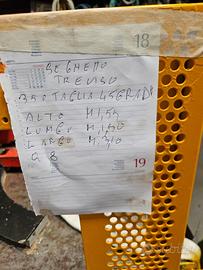 18
SEGHETTO
TREVISO
350 TAGLIA 45 GRADI
ALTO M 1,55
LUNGO M 1,50
LARGO M
Q 8
19